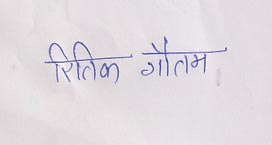 रितिक गौतम